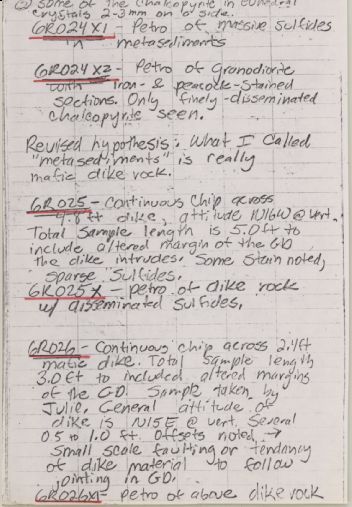 ② Some of the Chalcopyrite in euhedral
crystals 2-3 mm on a side.
6R024X1 - Petro of massive sulfides
in metasediments
6R024X2 - Petro of Granodiorite
with iron- & peacock-stained
sections. Only finely-disseminated
chalcopyrite seen.
Revised hypothesis: What I Called
"metasediments" is really
mafic dike rock.
6R025 - Continuous Chip across
ft dike, attitude N16W @ vert.
Total Sample length is 5.0 ft to
include altered margin of the GD
the dike intrudes. Some Stain noted,
sparse Sulfides.
6R025X - petro of dike rock
w/ disseminated sulfides.
6R026 - Continuous chip across 2.4ft
mafic dike. Total sample length
3.0 ft to included altered margins
of the GD. Sample taken by
Julie. General attitude of
dike is N15E @ vert. Several
0.5 to 1.0 ft. Offsets noted, →
Small scale faulting or tendancy
of dike material to follow
jointing in GD.
6R026X1 - Petro of above dike rock